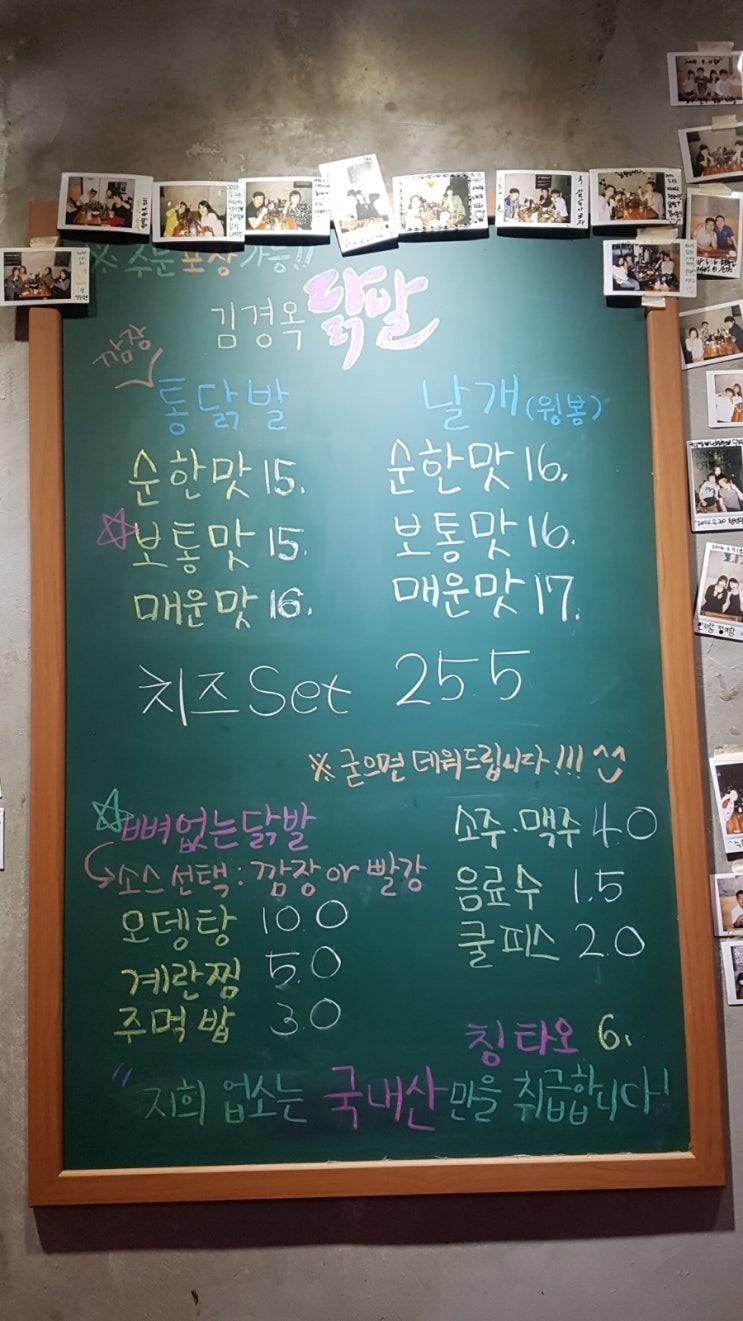 ※ 주문 포장 가능!!
김경옥 닭발
깜장
통닭발
순한맛 15.
보통맛 15.
매운맛 16.
날개(윙봉)
순한맛 16.
보통맛 16.
매운맛 17.
치즈 Set 25.5
※ 굳으면 데워드립니다!!! ^^
뼈없는닭발
소스선택: 깜장 or 빨강
오뎅탕 10.0
계란찜 5.0
주먹밥 3.0
소주·맥주 4.0
음료수 1.5
쿨피스 2.0
칭타오 6.
"저희 업소는 국내산만을 취급합니다!